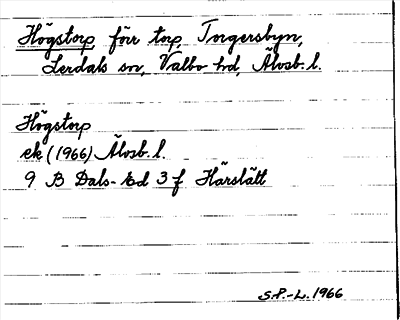 Högstorp, förr torp, Torgersbyn,
Lerdals sn, Valbo hd, Älvsb. l.
Högstorp
ek (1966) Älvsb. l.
9 B Dals-Ed 3 f Härslätt
S.P.-L. 1966